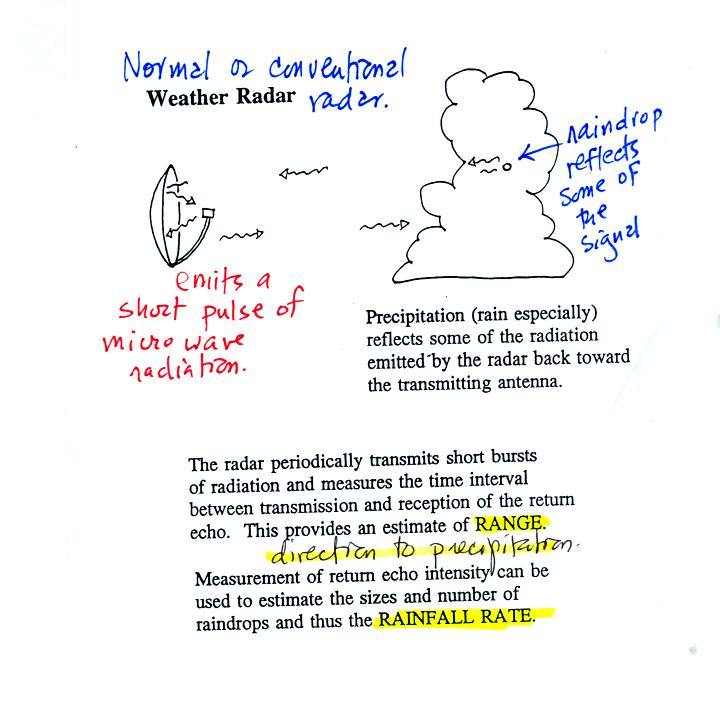 Normal or conventional
Weather Radar radar.
raindrop
reflects
some of
the
signal
emits a
short pulse of
micro wave
radiation.
Precipitation (rain especially)
reflects some of the radiation
emitted by the radar back toward
the transmitting antenna.
The radar periodically transmits short bursts
of radiation and measures the time interval
between transmission and reception of the return
echo. This provides an estimate of RANGE.
direction to precipitation.
Measurement of return echo intensity can be
used to estimate the sizes and number of
raindrops and thus the RAINFALL RATE.